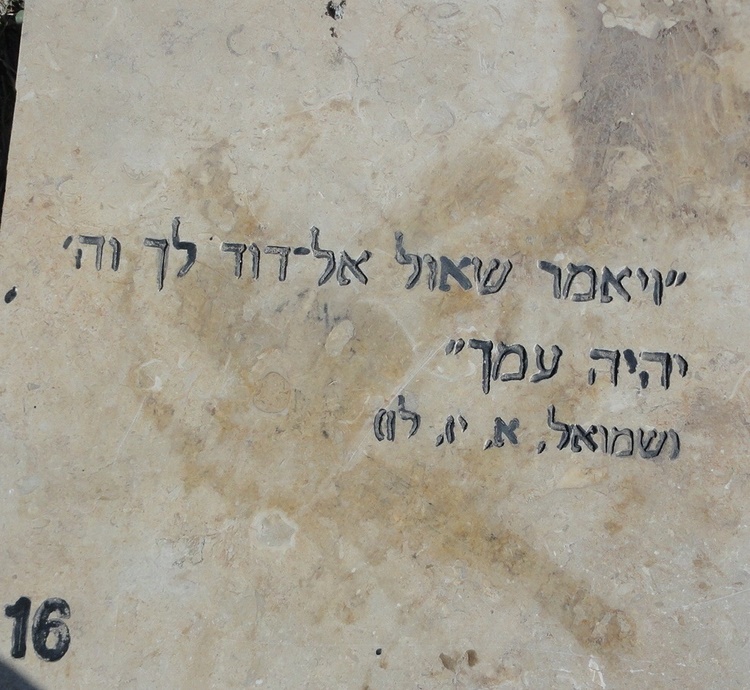 "ויאמר שאול אל-דוד לך וה'
יהיה עמך"
(שמואל, א, יז, לז)
16